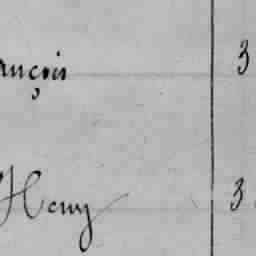 ançois 3
Henry 3